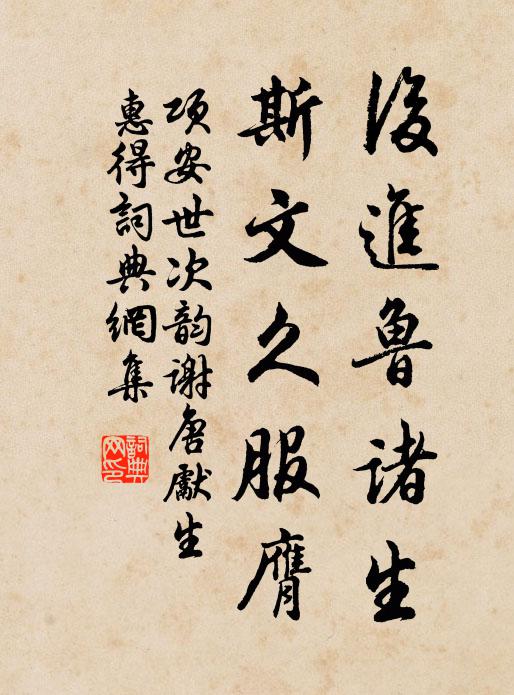 後進魯諸生
斯文久服膺
項安世次韵謝唐獻生
惠得詞典網集
詞典網印